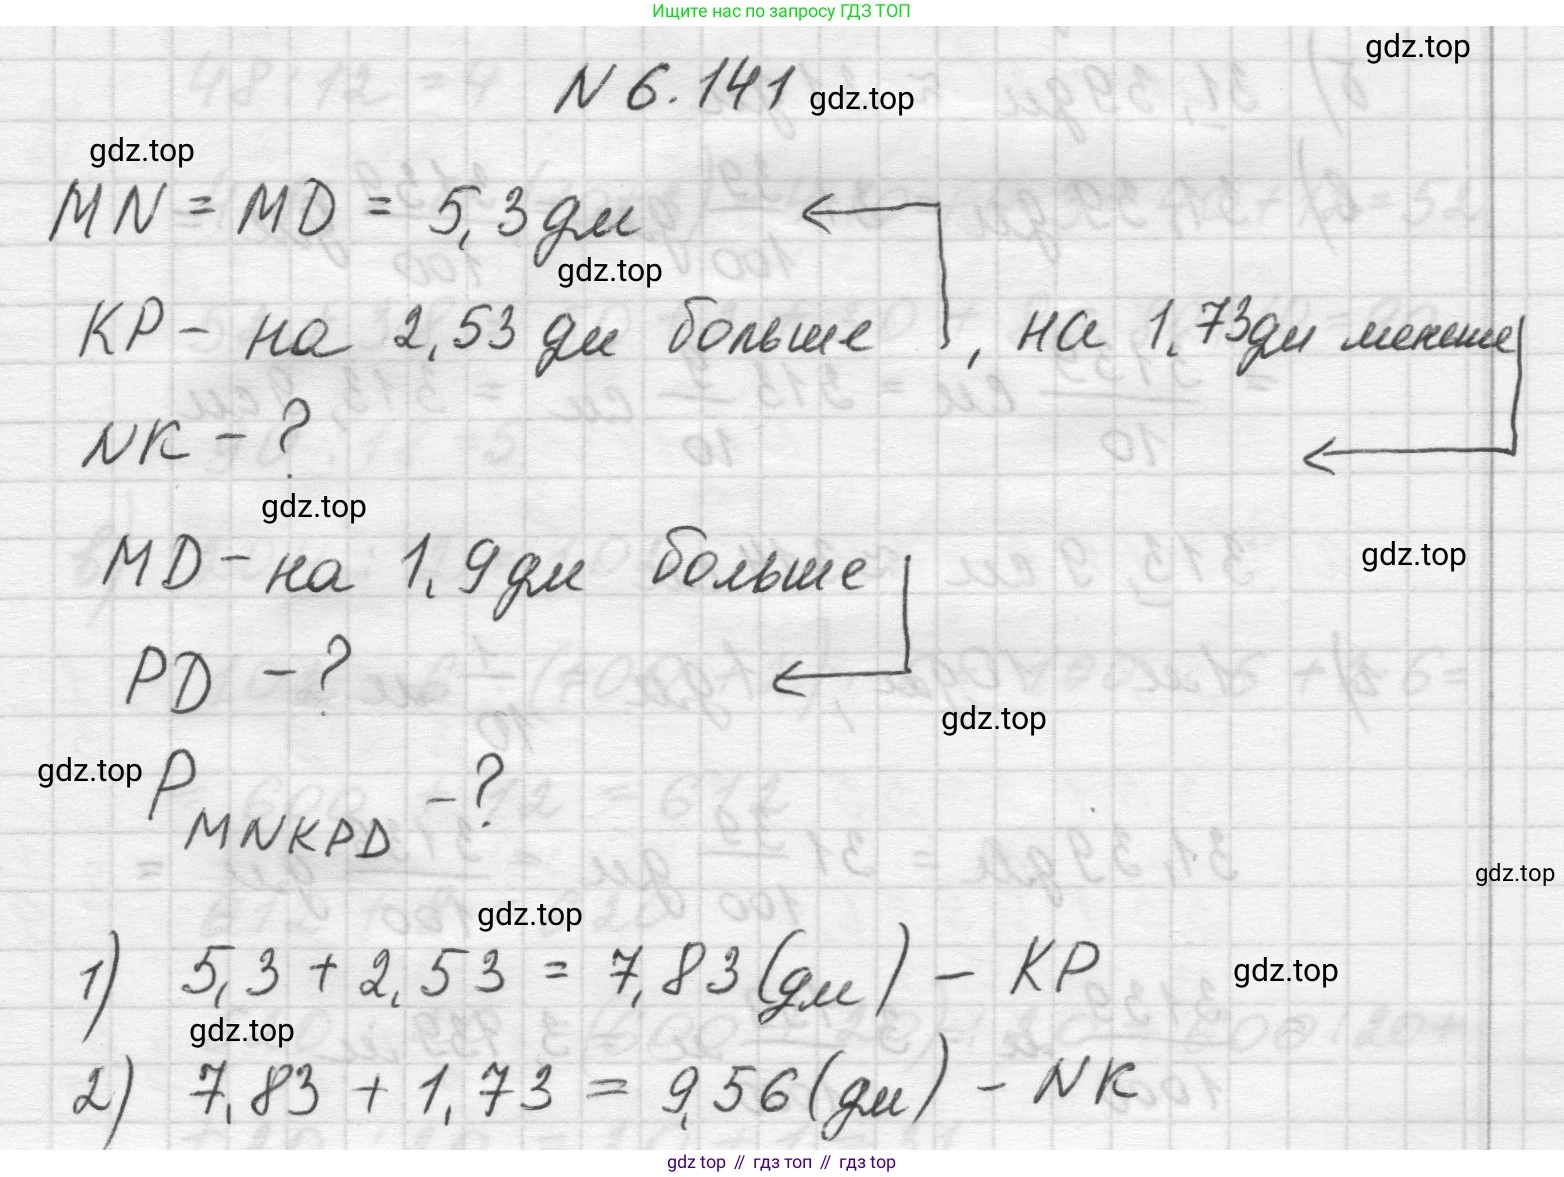 Ищите нас по запросу ГДЗ ТОП
gdz.top
N 6.141 gdz.top
gdz.top
MN = MD = 5,3 дм
gdz.top
KP - на 2,53 дм больше, на 1,73 дм меньше
NK - ?
gdz.top
MD - на 1,9 дм больше
gdz.top
PD - ?
gdz.top
gdz.top
P MNKPD - ?
gdz.top
gdz.top
1) 5,3 + 2,53 = 7,83 (дм) - KP
gdz.top
gdz.top
2) 7,83 + 1,73 = 9,56 (дм) - NK
gdz top // гдз топ // гдз top